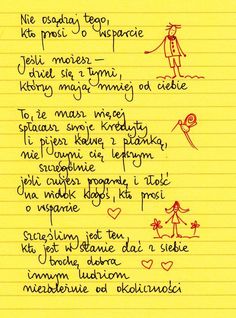 Nie osądzaj tego,
kto prosi o wsparcie
Jeśli możesz —
dziel się z tymi,
którzy mają mniej od ciebie
To, że masz więcej
spłacasz swoje kredyty
i pijesz kawę z pianką,
nie czyni cię lepszym
szczególnie
jeśli czujesz pogardę i złość
na widok kogoś, kto prosi
o wsparcie
Szczęśliwy jest ten,
kto jest w stanie dać z siebie
trochę dobra
innym ludziom
niezależnie od okoliczności